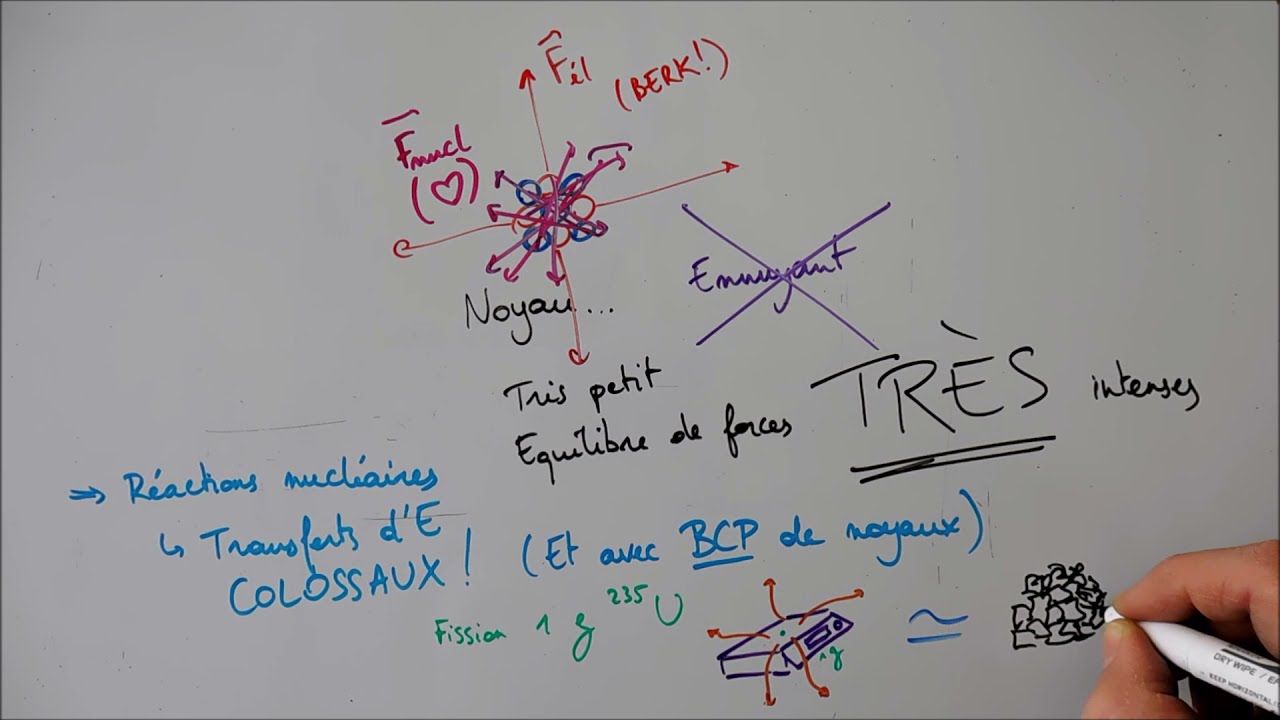 F él
(BERK!)
F nucl
(♡)
Noyau...
Ennuyant
Très petit
Equilibre de forces TRÈS intenses
⇒ Réactions nucléaires
↳ Transferts d'E
COLOSSAUX ! (Et avec BCP de noyaux)
Fission 1 g ²³⁵U
1g
≃
DRY WIPE / EF
KEEP HORIZONTAL